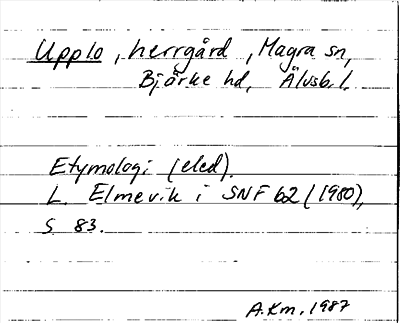 Upplo, herrgård, Magra sn,
Bjärke hd, Älvsb. l.
Etymologi (eled).
L. Elmevik i SNF 62 (1980),
S. 83.
A.Km. 1987